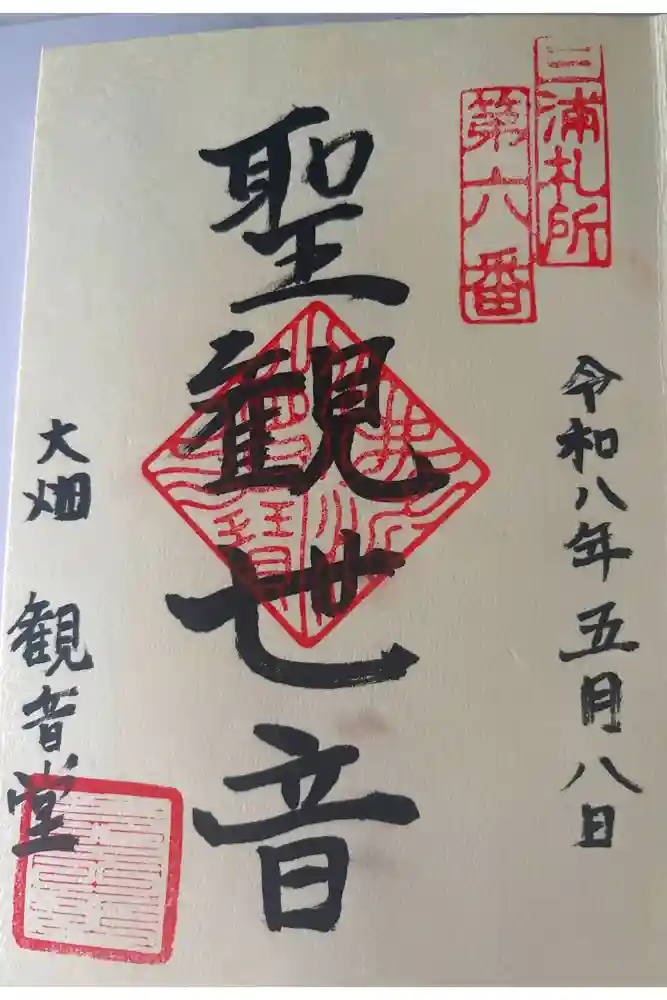 三浦札所
第六番
令和八年五月八日
聖観世音
大畑 観音堂